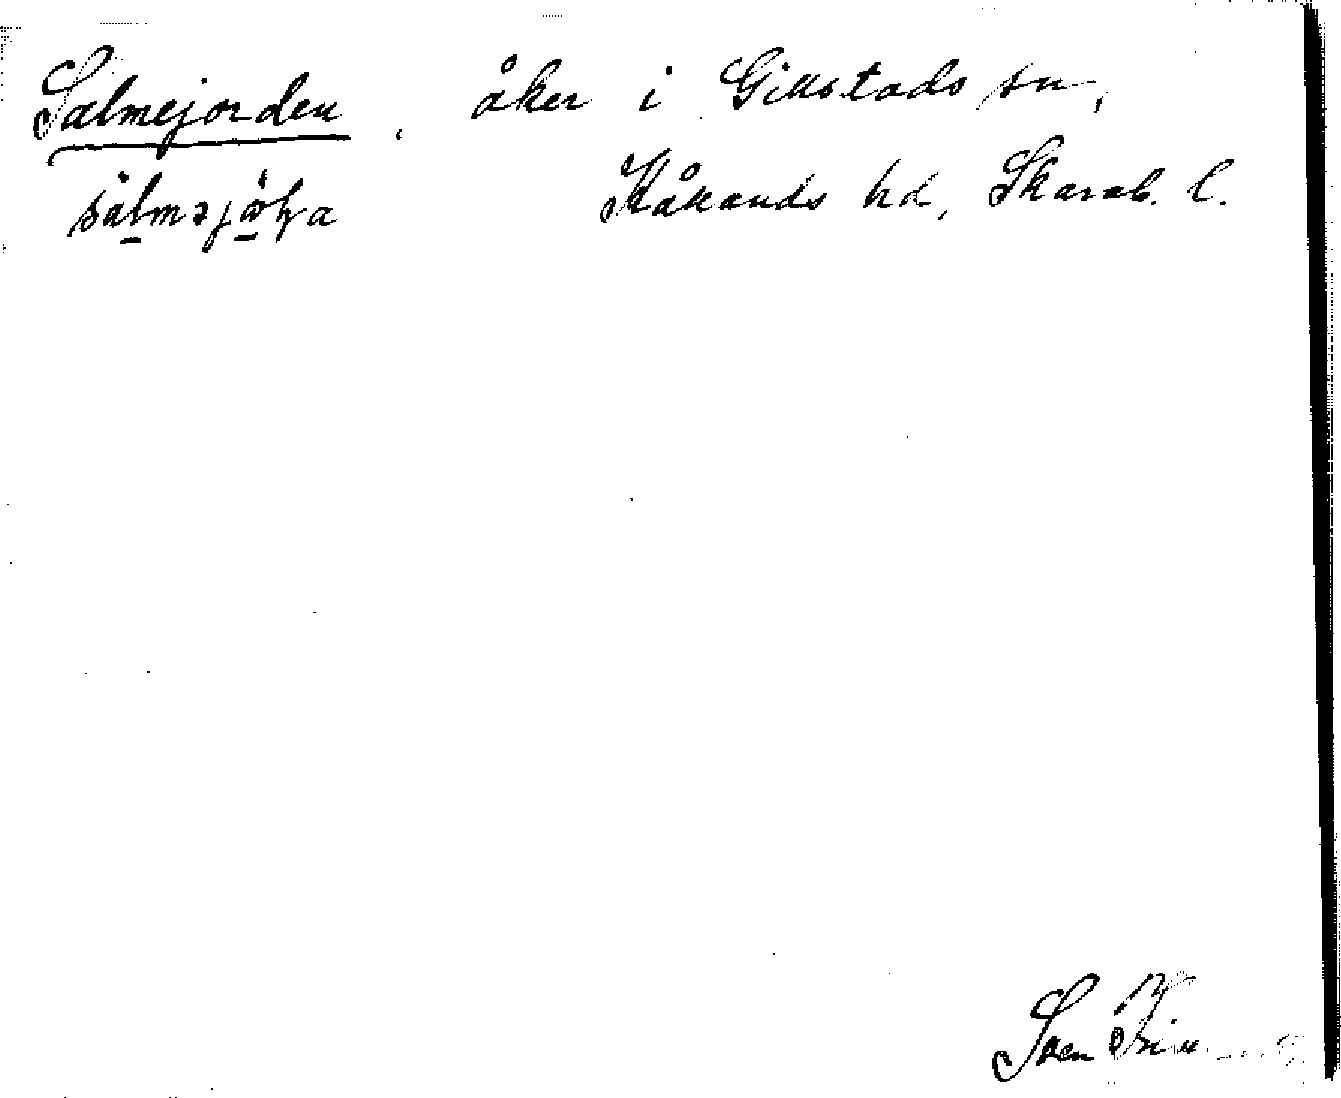 Salmejorden, åker i Gillstads sn,
Kållands hd, Skarab. l.
Sven